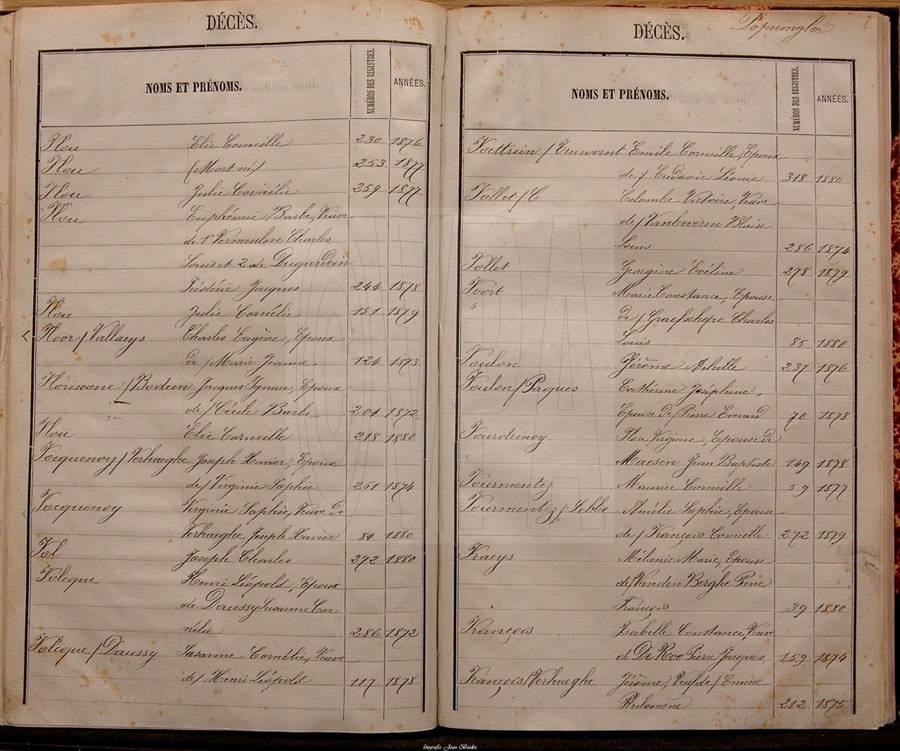 DÉCÈS.
NOMS ET PRÉNOMS. NUMÉROS DES REGISTRES. ANNÉES.
Flou Elie Corneille 230 1876
Flou (Mort né) 253 1877
Flou Julie Cornélie 259 1877
Flou Euphémie Barbe, Veuve
de 1° Vermeulen Charles
Louis et 2 de Dugardein
Fréderic Jacques 244 1878
Flou Julie Cornélie 151 1879
Floor / Vallaeys Charles Eugène, Epoux
de / Marie Jeanne 124 1873
Florisoone / Jacques Ignace, Epoux
de / Cécile Barbe 201 1872
Flou Elie Corneille 218 1880
Focquenoy / Verhaeghe Joseph Xavier, Epoux
de / Virginie Sophie 251 1874
Focquenoy Virginie Sophie, Veuve de
Verhaeghe Joseph Xavier 80 1880
Fol Joseph Charles 272 1880
Folcque Henri Léopold, Epoux
de Daussy Susanne Cor-
nélie 286 1872
Folcque / Daussy Susanne Cornélie, Veuve
de / Henri Léopold 117 1878
DÉCÈS. Poperinghe
NOMS ET PRÉNOMS. NUMÉROS DES REGISTRES. ANNÉES.
Emile Corneille, Epoux
de / Léonie 318 1880
Follet / C Colombe Victoire, Veuve
de / Vanbeveren Blaise
Louis 286 1874
Follet Georgine Eveline 278 1879
Foort Marie Constance, Epouse
de / Graefschepe Charles
Louis 85 1880
Foulon Jérôme Achille 237 1876
Foulon / Pacques Catherine Joséphine,
Epouse de / Pierre Evrard 70 1878
Fourdrinoy Flore Virginie, Epouse de
Maesen Jean Baptiste 149 1878
Fourmentez Maurice Corneille 59 1877
Fourmentez / Lebbe Amélie Sophie, Epouse
de / François Corneille 272 1879
Fraeys Mélanie Marie, Epouse
de Vanden Berghe Pierre
François 39 1880
François Isabelle Constance, Veuve
de De Roo Pierre Jacques 159 1874
François / Verhaeghe Jérôme, Veuf de / Emérie
Philomène 212 1875
fotografie Jean Baelde